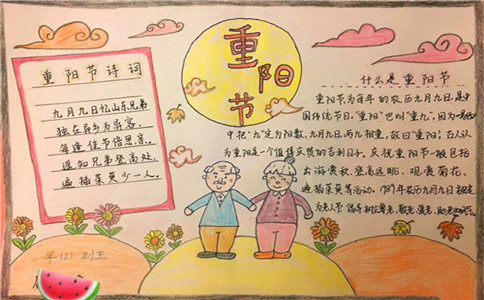 重阳节
重阳节诗词
九月九日忆山东兄弟
独在异乡为异客，
每逢佳节倍思亲。
遥知兄弟登高处，
遍插茱萸少一人。
什么是重阳节
重阳节为每年的农历九月九日，是中
国传统节日。"重阳"也叫"重九"，因为《易经》
中把"九"定为阳数，九月九日，两九相重，故曰重阳；古人认
为重阳是个值得庆贺的吉利日子，庆祝重阳节一般包括
出游赏秋、登高远眺、观赏菊花、
遍插茱萸等活动，1989年农历九月九日被定
为老人节，倡导